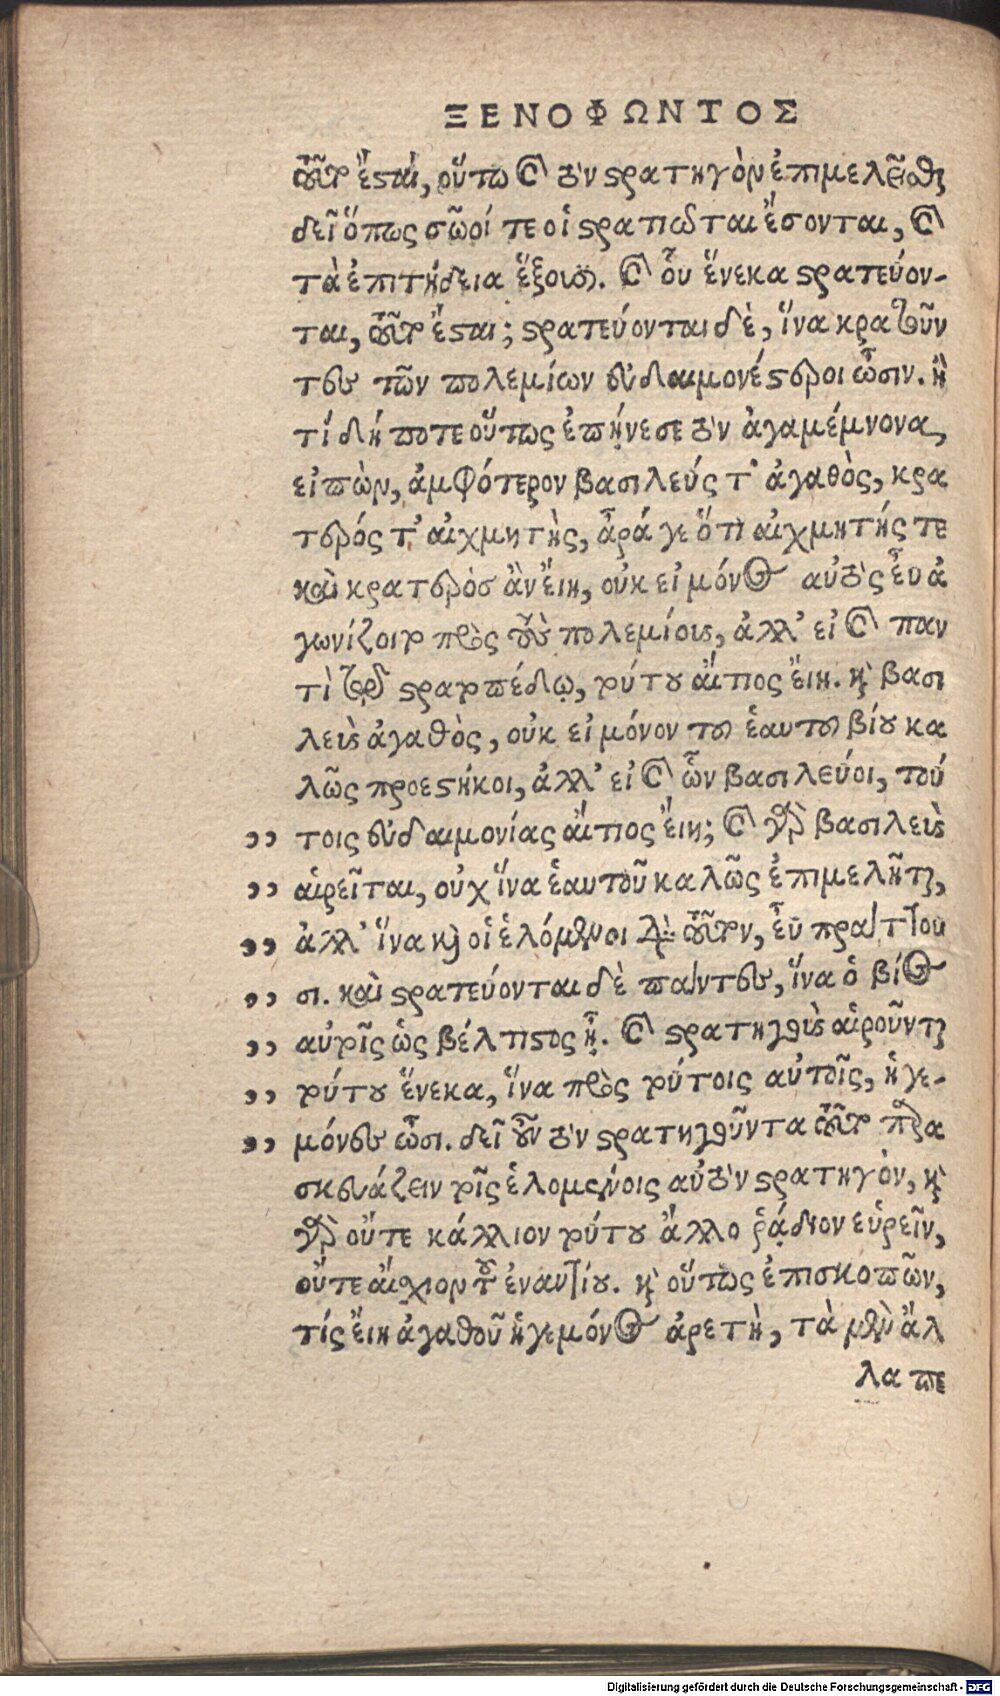 ΞΕΝΟΦΩΝΤΟΣ
τοῦτο ἔσται, οὕτω καὶ τὸν στρατηγὸν ἐπιμελεῖσθαι
δεῖ ὅπως σῶοί τε οἱ στρατιῶται ἔσονται, καὶ
τὰ ἐπιτήδεια ἕξουσι. καὶ οὗ ἕνεκα στρατεύον-
ται, τοῦτο ἔσται; στρατεύονται δὲ, ἵνα κρατοῦν
τες τῶν πολεμίων εὐδαιμονέστεροι ὦσιν. ἢ
τί δή ποτε οὕτως ἐπῄνεσε τὸν ἀγαμέμνονα,
εἰπὼν, ἀμφότερον βασιλεύς τ' ἀγαθὸς, κρα
τερός τ' αἰχμητὴς, ἆρά γε ὅτι αἰχμητής τε
καὶ κρατερὸσ ἂν εἴη, οὐκ εἰ μόνος αὐτὸς εὖ ἀ
γωνίζοιτο πρὸς τοὺς πολεμίους, ἀλλ' εἰ καὶ παν
τὶ τῷ στρατοπέδῳ, τούτου αἴτιος εἴη. καὶ βασι
λεὺς ἀγαθὸς, οὐκ εἰ μόνον τοῦ ἑαυτοῦ βίου κα
λῶς προεστήκοι, ἀλλ' εἰ καὶ ὧν βασιλεύοι, τού
,, τοις εὐδαιμονίας αἴτιος εἴη; καὶ γὰρ βασιλεὺς
,, αἱρεῖται, οὐχ ἵνα ἑαυτοῦ καλῶς ἐπιμελῆται,
,, ἀλλ' ἵνα καὶ οἱ ἑλόμενοι διὰ τοῦτον, εὖ πράττου
,, σι. καὶ στρατεύονται δὲ πάντες, ἵνα ὁ βίος
,, αὐτοῖς ὡς βέλτιστος ᾖ. καὶ στρατηγοὺς αἱροῦνται
,, τούτου ἕνεκα, ἵνα πρὸς τούτοις αὐτοῖς, ἡγε-
,, μόνες ὦσι. δεῖ οὖν τὸν στρατηγοῦντα τοῦτο παρα
σκευάζειν τοῖς ἑλομένοις αὐτὸν στρατηγὸν, καὶ
γὰρ οὔτε κάλλιον τούτου ἄλλο ῥᾴδιον εὑρεῖν,
οὔτε αἴσχιον τοῦ ἐναντίου. καὶ οὕτως ἐπισκοπῶν,
τίς εἴη ἀγαθοῦ ἡγεμόνος ἀρετὴ, τὰ μὲν ἄλ
λα πε
Digitalisierung gefördert durch die Deutsche Forschungsgemeinschaft - DFG